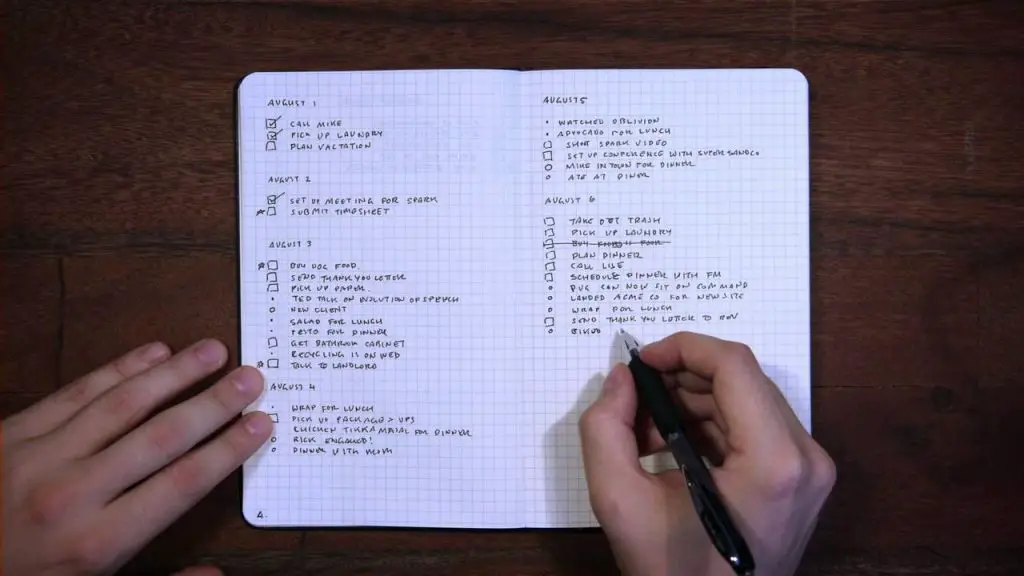 AUGUST 1
CALL MIKE
PICK UP LAUNDRY
PLAN VACTATION
AUGUST 2
SET UP MEETING FOR SPARK
SUBMIT TIMESHEET
AUGUST 3
BUY DOG FOOD
SEND THANK YOU LETTER
PICK UP PAPER
TED TALK ON EVOLUTION OF SPEECH
NEW CLIENT
SALAD FOR LUNCH
PESTO FOR DINNER
GET BATHROOM CABINET
RECYCLING IS ON WED
TALK TO LANDLORD
AUGUST 4
WRAP FOR LUNCH
PICK UP PACKAGE > UPS
CHICKEN TIKKA FOR DINNER
RICK ENGAGED!
DINNER WITH MOM
4.
AUGUST 5
WATCHED OBLIVION
ADVOCADO FOR LUNCH
SHOOT SPARK VIDEO
SET UP CONFERENCE WITH SUPERSANDCO
MIKE IN TOWN FOR DINNER
ATE AT DINER
AUGUST 6
TAKE OUT TRASH
PICK UP LAUNDRY
BUY
PLAN DINNER
CALL LISE
SCHEDULE DINNER WITH FM
PUG CAN NOW SIT ON COMMAND
LANDED ACME CO FOR NEW SITE
WRAP FOR LUNCH
SEND THANK YOU LETTER TO